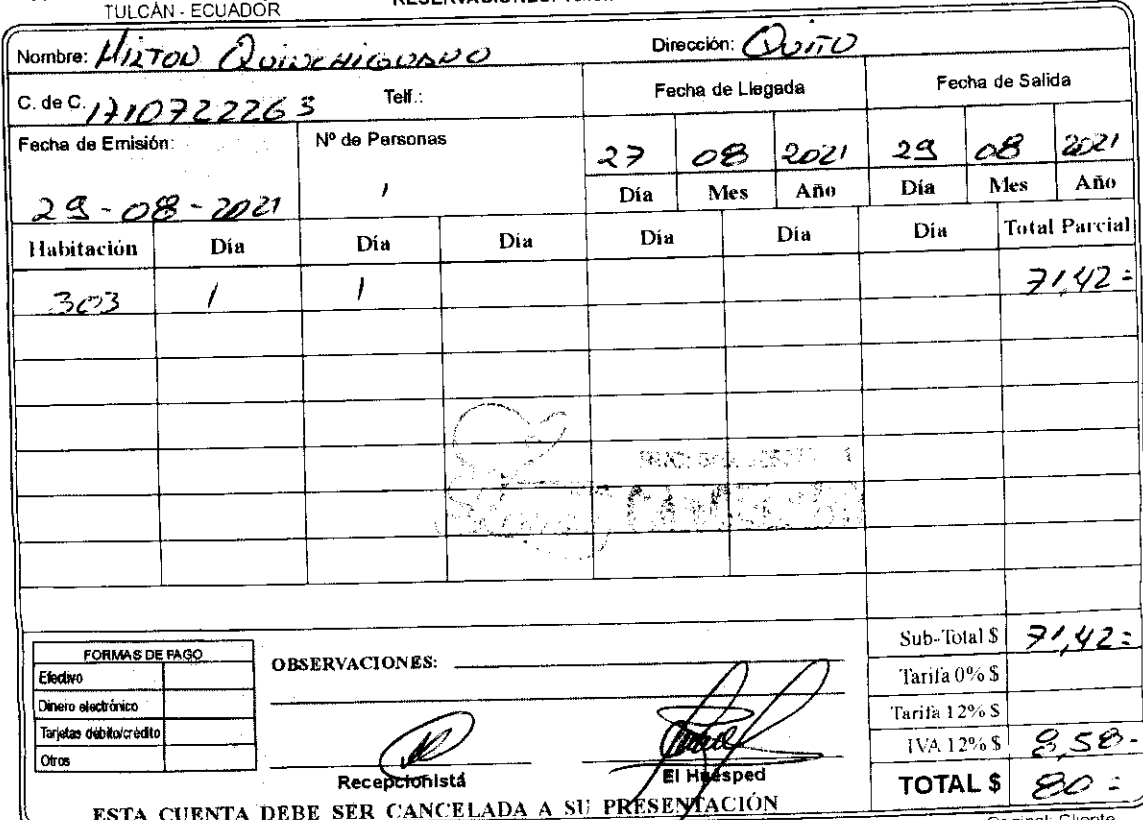 TULCÁN - ECUADOR
Nombre: MILTON QUINCHIGUANO Dirección: QUITO
C. de C. 1710722263 Telf.: Fecha de Llegada Fecha de Salida
Fecha de Emisión: Nº de Personas
29-08-2021 1 27 08 2021 29 08 2021
Día Mes Año Día Mes Año
Habitación Día Día Día Día Día Día Total Parcial
303 1 1 71,42=
FORMAS DE PAGO
Efectivo
Dinero electrónico
Tarjetas débito/crédito
Otros
OBSERVACIONES:
Recepcionista
El Huésped
Sub-Total $ 71,42=
Tarifa 0% $
Tarifa 12% $
IVA 12% $ 8,58-
TOTAL $ 80=
ESTA CUENTA DEBE SER CANCELADA A SU PRESENTACIÓN
Original: Cliente